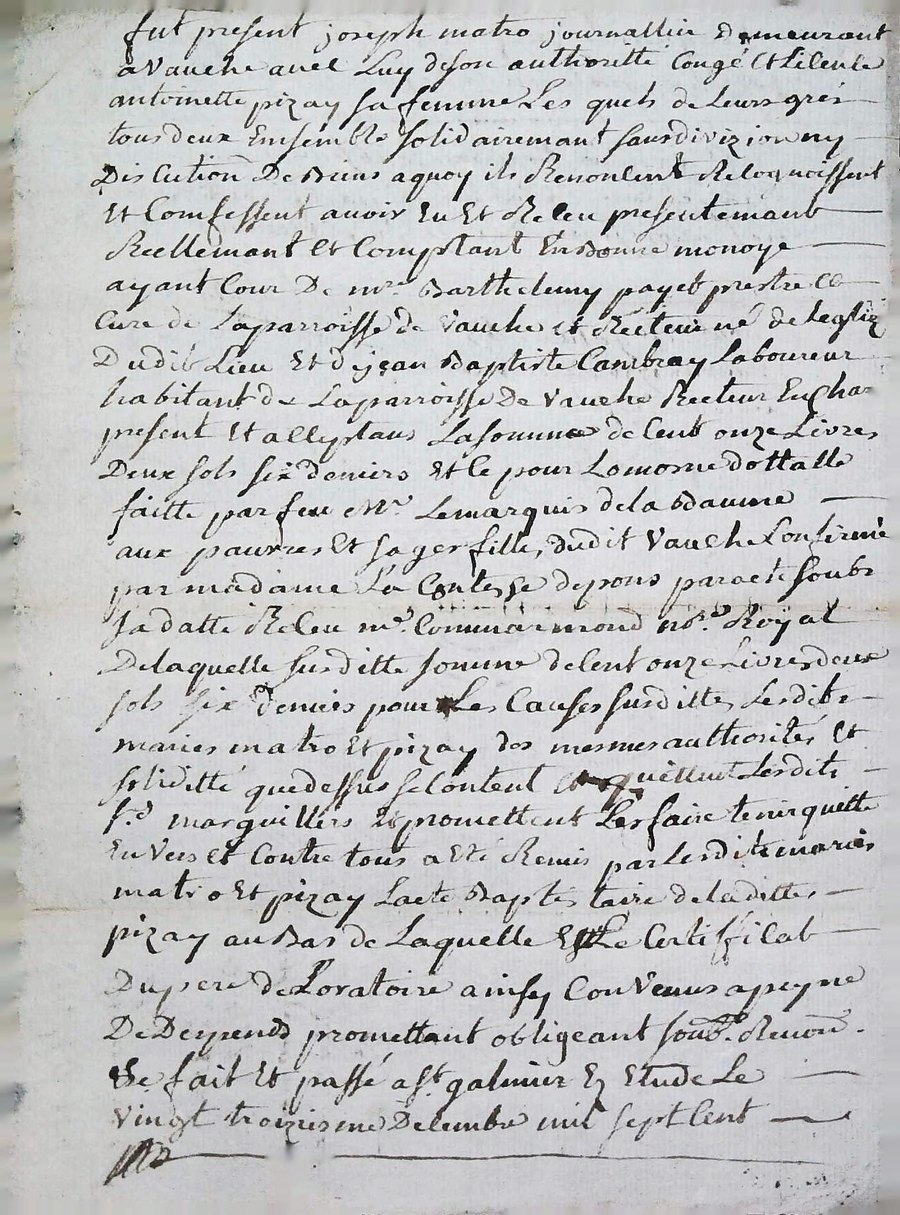 fut present joseph matro journallier demeurant
a Vauche avec Luy de son authoritté Congé Et Licence
antoinette pizay sa femme Les quels de Leurs gres
tous deux Ensemble solidairemant sans divizion ny
Discution De Biens a quoy ils Renoncent Recognoissent
Et Comfessent avoir Eu Et Receu presentemant
Reellemant Et Comptant En Bonne monoye
ayant Cour De mre Barthelemy payet prestre Et
Cure de La parroisse de Vauche et Recteur né de Leglize
Dudit Lieu Et de jean Baptiste Cambray Laboureur
habitant de La parroisse De Vauche Recteur En Char
present Et acceptans La somme de Cent onze Livres
Deux sols six deniers Et Ce pour Lomosne dottalle
faitte par feu Mr Le marquis de la Baume
aux pauvres Et sages filles dudit Vauche Confirmé
par madame La Contesse de pons par acte soubs
sa datte Receu me Commarmond nore Royal
De laquelle susditte somme de Cent onze Livres deux
sols six deniers pour Les Causes susdittes Lesdits
maries matro Et pizay des mesmes authorités Et
soliditté que dessus se Contentent quittent Lesdits
srs marguilliers Et promettent Les faire tenir quitte
En Vers et Contre tous a Eté Remis par Lesdits maries
matro Et pizay Lacte Baptistaire de laditte
pizay au Bas de Laquelle Est Le Certifficat
Du pere de Loratoire ainsy Convenus a peyne
De Depends promettant obligeant soub. Renon.
fait Et passé a st galmier Etude Le
Vingt troizieme Decembre mil sept Cent